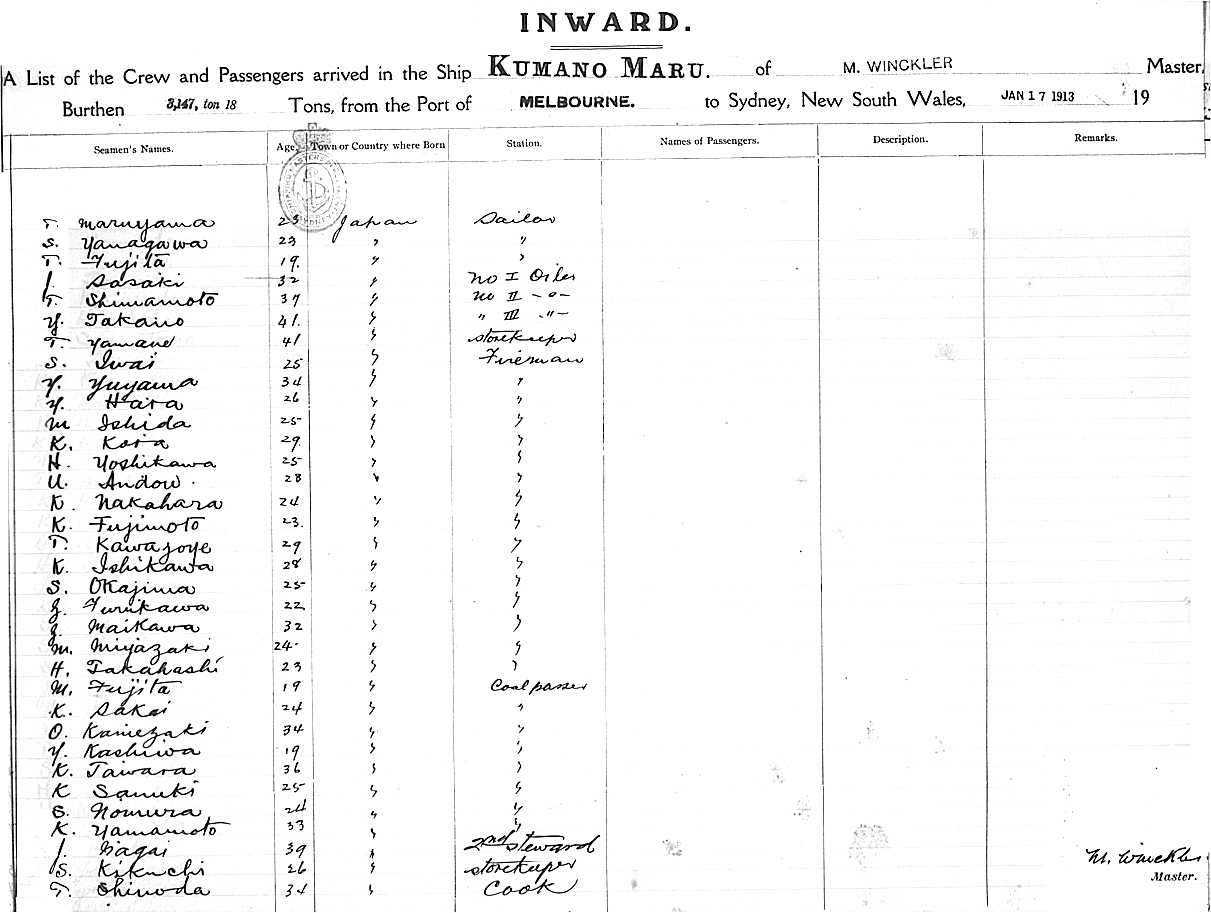 INWARD.
A List of the Crew and Passengers arrived in the Ship KUMANO MARU. of M. WINCKLER Master,
Burthen 3,147, ton 18 Tons, from the Port of MELBOURNE. to Sydney, New South Wales, JAN 17 1913 19
Seamen's Names. Age. Town or Country where Born Station. Names of Passengers. Description. Remarks.
T. Maruyama 23 Japan Sailor
S. Yanagawa 23 " "
T. Fujita 19. " "
J. Sasaki 32 " No I Oiler
T. Shimamoto 37 " No II -o-
Y. Takano 41. " " III -"-
T. Yamane 41 " storekeeper
S. Iwai 25 " Fireman
Y. Yuyama 34 " "
Y. Hara 26 " "
M Ishida 25 " "
K. Kora 29. " "
H. Yoshikawa 25 " "
U. Andow. 28 " "
K. Nakahara 24 " "
K. Fujimoto 23. " "
T. Kawazoye 29 " "
K. Ishikawa 28 " "
S. Okajima 25 " "
Furukawa 22 " "
Maikawa 32 " "
M. Miyazaki 24 " "
H. Takahashi 23 " "
M. Fujita 19 " Coalpasser
K. Sakai 24 " "
O. Kamezaki 34 " "
Y. Kashiwa 19 " "
K. Tawara 36 " "
K Sanuki 25 " "
S. Nomura 24 " "
K. Yamamoto 33 " "
J. Nagai 39 " 2nd steward
S. Kikuchi 26 " storekeeper
T. Shinoda 34 " Cook
M. Winckler
Master.